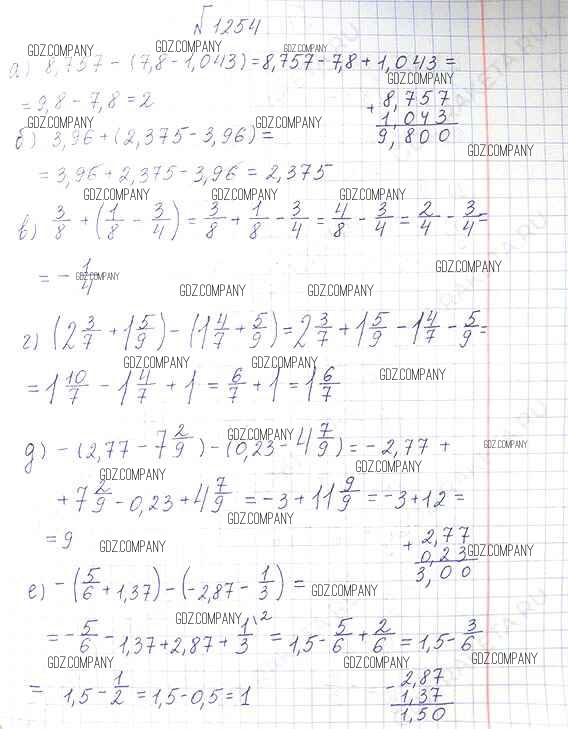 №1254
GDZ.COMPANY GDZ.COMPANY GDZ.COMPANY
а) 8,757 - (7,8 - 1,043) = 8,757 - 7,8 + 1,043 =
GDZ.COMPANY
= 9,8 - 7,8 = 2
+ 8,757
1,043
9,800
GDZ.COMPANY GDZ.COMPANY GDZ.COMPANY
б) 3,96 + (2,375 - 3,96) =
= 3,96 + 2,375 - 3,96 = 2,375
GDZ.COMPANY GDZ.COMPANY GDZ.COMPANY
в) 3/8 + (1/8 - 3/4) = 3/8 + 1/8 - 3/4 = 4/8 - 3/4 = 2/4 - 3/4 =
GDZ.COMPANY
= - 1/4
GDZ.COMPANY
GDZ.COMPANY GDZ.COMPANY
г) (2 3/7 + 1 5/9) - (1 4/7 + 5/9) = 2 3/7 + 1 5/9 - 1 4/7 - 5/9 =
GDZ.COMPANY GDZ.COMPANY GDZ.COMPANY
= 1 10/7 - 1 4/7 + 1 = 6/7 + 1 = 1 6/7
GDZ.COMPANY GDZ.COMPANY
д) - (2,77 - 7 2/9) - (0,23 - 4 7/9) = - 2,77 +
GDZ.COMPANY GDZ.COMPANY
+ 7 2/9 - 0,23 + 4 7/9 = - 3 + 11 9/9 = - 3 + 12 =
GDZ.COMPANY
= 9
GDZ.COMPANY
+ 2,77
0,23
3,00
GDZ.COMPANY
е) - (5/6 + 1,37) - (- 2,87 - 1/3) =
GDZ.COMPANY
GDZ.COMPANY GDZ.COMPANY
= - 5/6 - 1,37 + 2,87 + 1/3 \2 = 1,5 - 5/6 + 2/6 = 1,5 - 3/6
GDZ.COMPANY GDZ.COMPANY GDZ.COMPANY
= 1,5 - 1/2 = 1,5 - 0,5 = 1
- 2,87
1,37
1,50